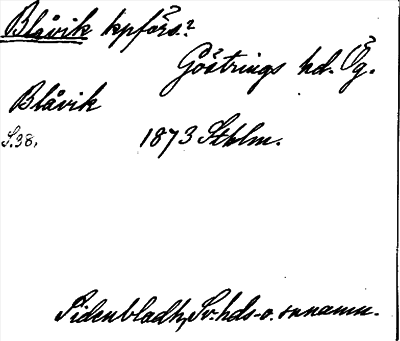 Blåvik kpförs.?
Göstrings hd. Ög.
Blåvik
S.98, 1873 Sthlm.
Sidenbladh, Sv. hds- o. snnamn.